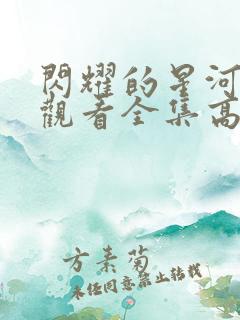 閃耀的星河
觀看全集高
方素菊
未经同意禁止转载